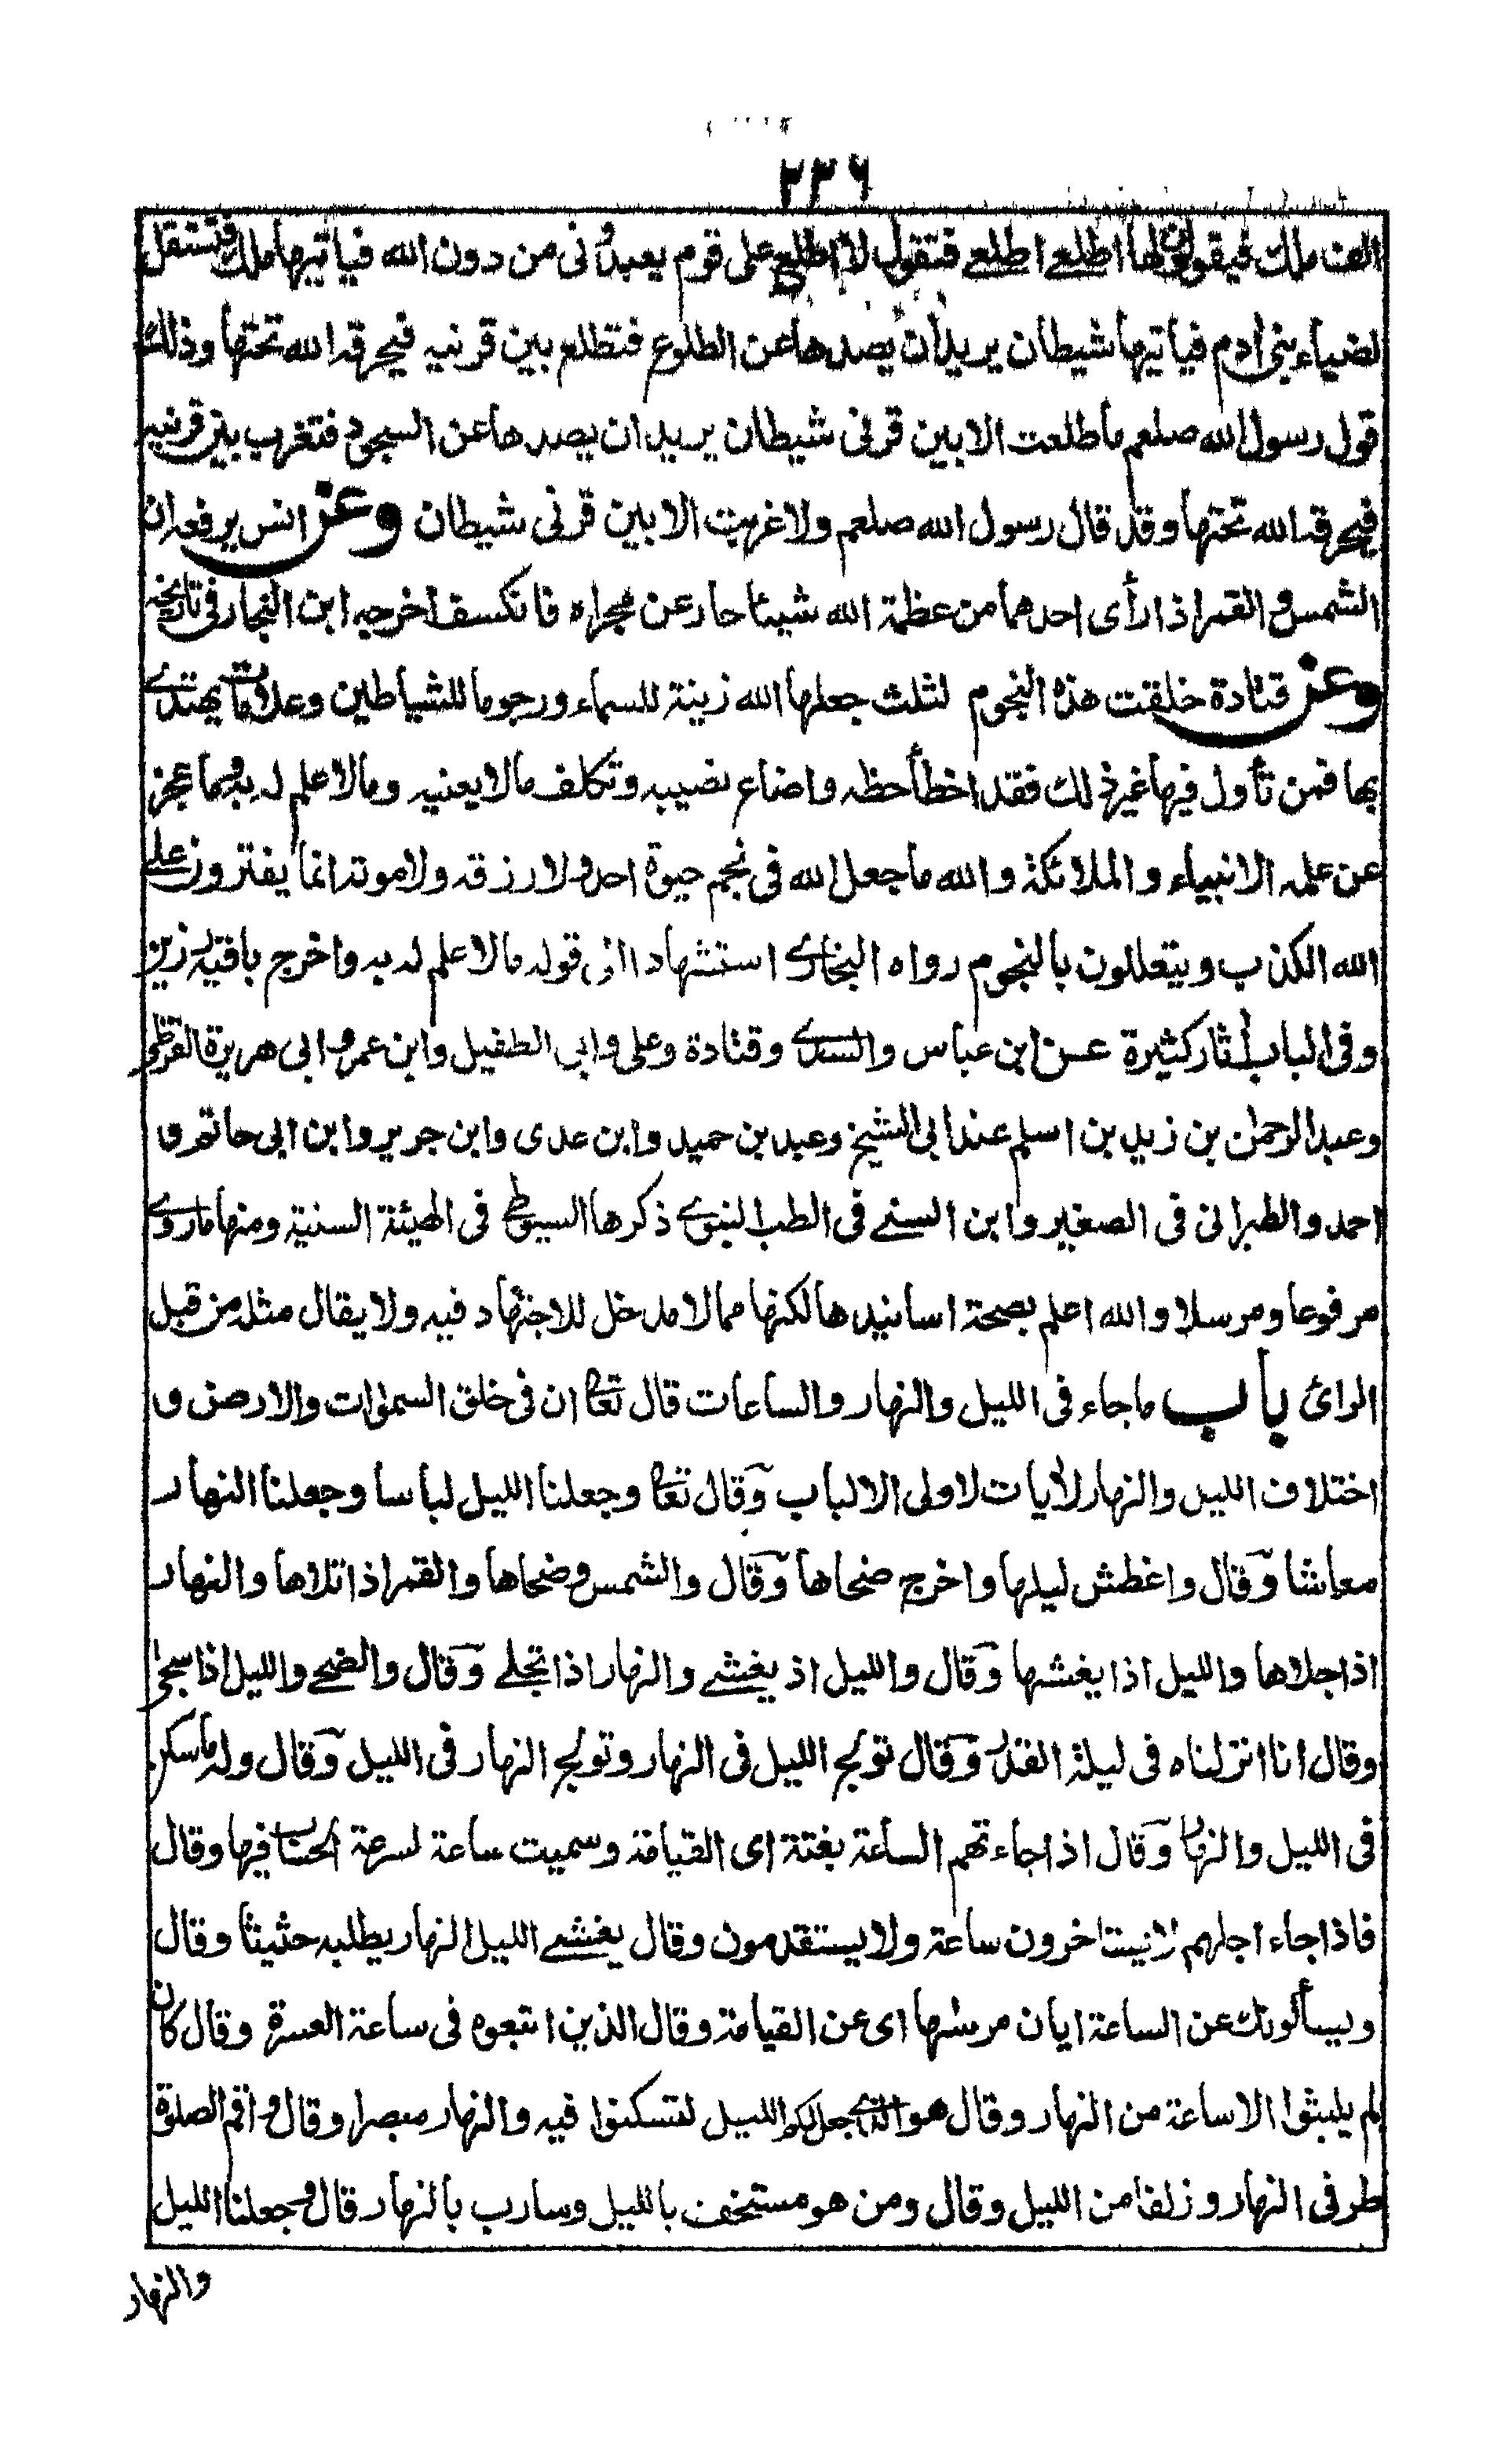 ٢٣٦
الف ملك فيقولون لها اطلعى اطلعى فتقول لا اطلع على قوم يعبدونى من دون الله فياتيها ملك فتستقل
لضياء بنى ادم فياتيها شيطان يريد ان يصدها عن الطلوع فتطلع بين قرنيه فيحرقه الله تحتها وذلك
قول رسول الله صلعم ما طلعت الا بين قرنى شيطان يريد ان يصدها عن السجود فتغرب بين قرنيه
فيحرقه الله تحتها وقد قال رسول الله صلعم ولا غربت الا بين قرنى شيطان وعن انس يرفعه ان
الشمس والقمر اذا رأى احدهما من عظمة الله شيئا حار عن مجراه فانكسف اخرجه ابن النجار فى تاريخه
وعن قتادة خلقت هذه النجوم لثلث جعلها الله زينة للسماء ورجوما للشياطين وعلامات يهتدى
بها فمن تأول فيها غير ذلك فقد اخطأ حظه واضاع نصيبه وتكلف ما لا يعنيه وما لا علم له به وما عجز
عن علمه الانبياء والملائكة والله ما جعل الله فى نجم حيوة احد ولا رزقه ولا موته انما يفترون على
الله الكذب ويتعللون بالنجوم رواه البخارى استشهادا الى قوله ما لا علم له به واخرج باقيه رزين
وفى الباب أثار كثيرة عن ابن عباس والسدى وقتادة وعلى وابى الطفيل وابن عمرو وابى هريرة القرظى
وعبد الرحمن بن زيد بن اسلم عند ابى الشيخ وعبد بن حميد وابن عدى وابن جرير وابن ابى حاتم و
احمد والطبرانى فى الصغير وابن السنى فى الطب النبوى ذكرها السيوطى فى الهيئة السنية ومنها ما روى
مرفوعا ومرسلا والله اعلم بصحة اسانيدها لكنها مما لا مدخل للاجتهاد فيه ولا يقال مثله من قبل
الرائ باب ما جاء فى الليل والنهار والساعات قال تعا ان فى خلق السموات والارض و
اختلاف الليل والنهار لأيات لاولى الالباب وقال تعا وجعلنا الليل لباسا وجعلنا النهار
معاشا وقال واغطش ليلها واخرج ضحاها وقال والشمس وضحاها والقمر اذا تلاها والنهار
اذا جلاها والليل اذا يغشها وقال والليل اذ يغشى والنهار اذا تجلى وقال والضحى والليل اذا سجى
وقال انا انزلناه فى ليلة القدر وقال تولج الليل فى النهار وتولج النهار فى الليل وقال وله ما سكن
فى الليل والنهار وقال اذا جاءتهم الساعة بغتة اى القيامة وسميت ساعة لسرعة الحساب فيها وقال
فاذا جاء اجلهم لا يستاخرون ساعة ولا يستقدمون وقال يغشى الليل النهار يطلبه حثيثا وقال
ويسألونك عن الساعة ايان مرسٰها اى عن القيامة وقال الذين اتبعوه فى ساعة العسرة وقال كان
لم يلبثوا الا ساعة من النهار وقال هو الذى جعل لكم الليل لتسكنوا فيه والنهار مبصرا وقال واقم الصلوة
طرفى النهار وزلفا من الليل وقال ومن هو مستخف بالليل وسارب بالنهار قال وجعلنا الليل
والنهار